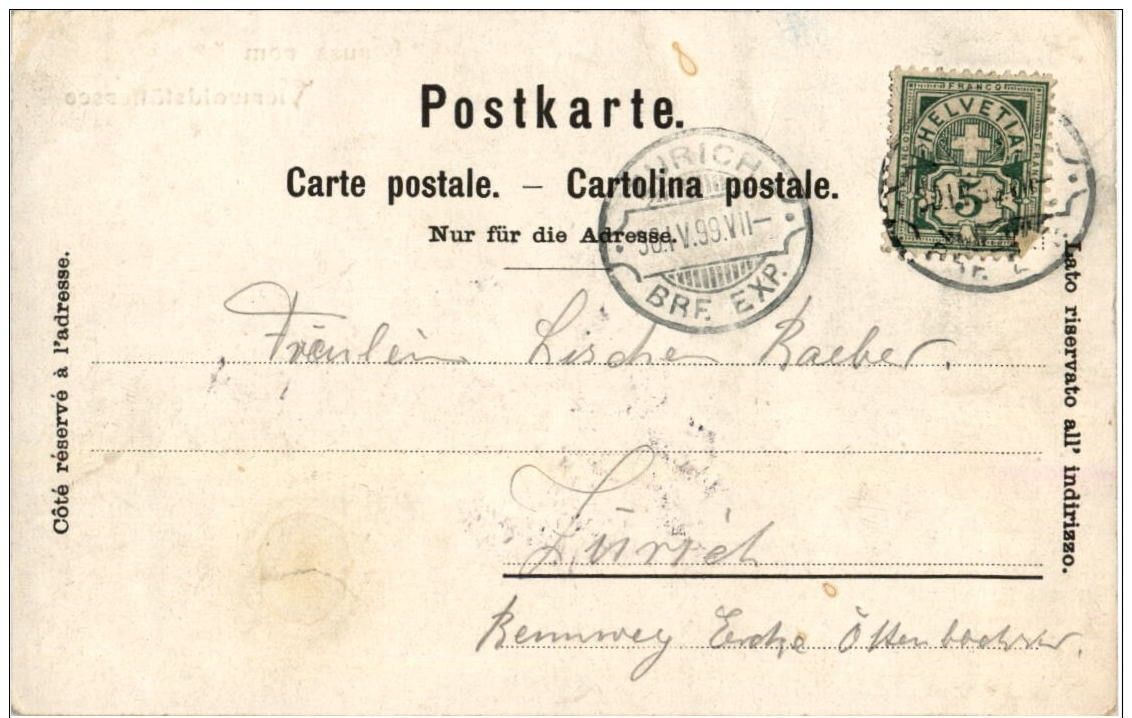 Postkarte.
Carte postale. — Cartolina postale.
Nur für die Adresse.
Côté réservé à l'adresse.
Lato riservato all' indirizzo.
FRANCO
HELVETIA
5
ZÜRICH
30.IV.99.VII—
BRF. EXP.
Fräulein Lischen Raeber.
Zürich
Rennweg Ecke Öttenbachstr.